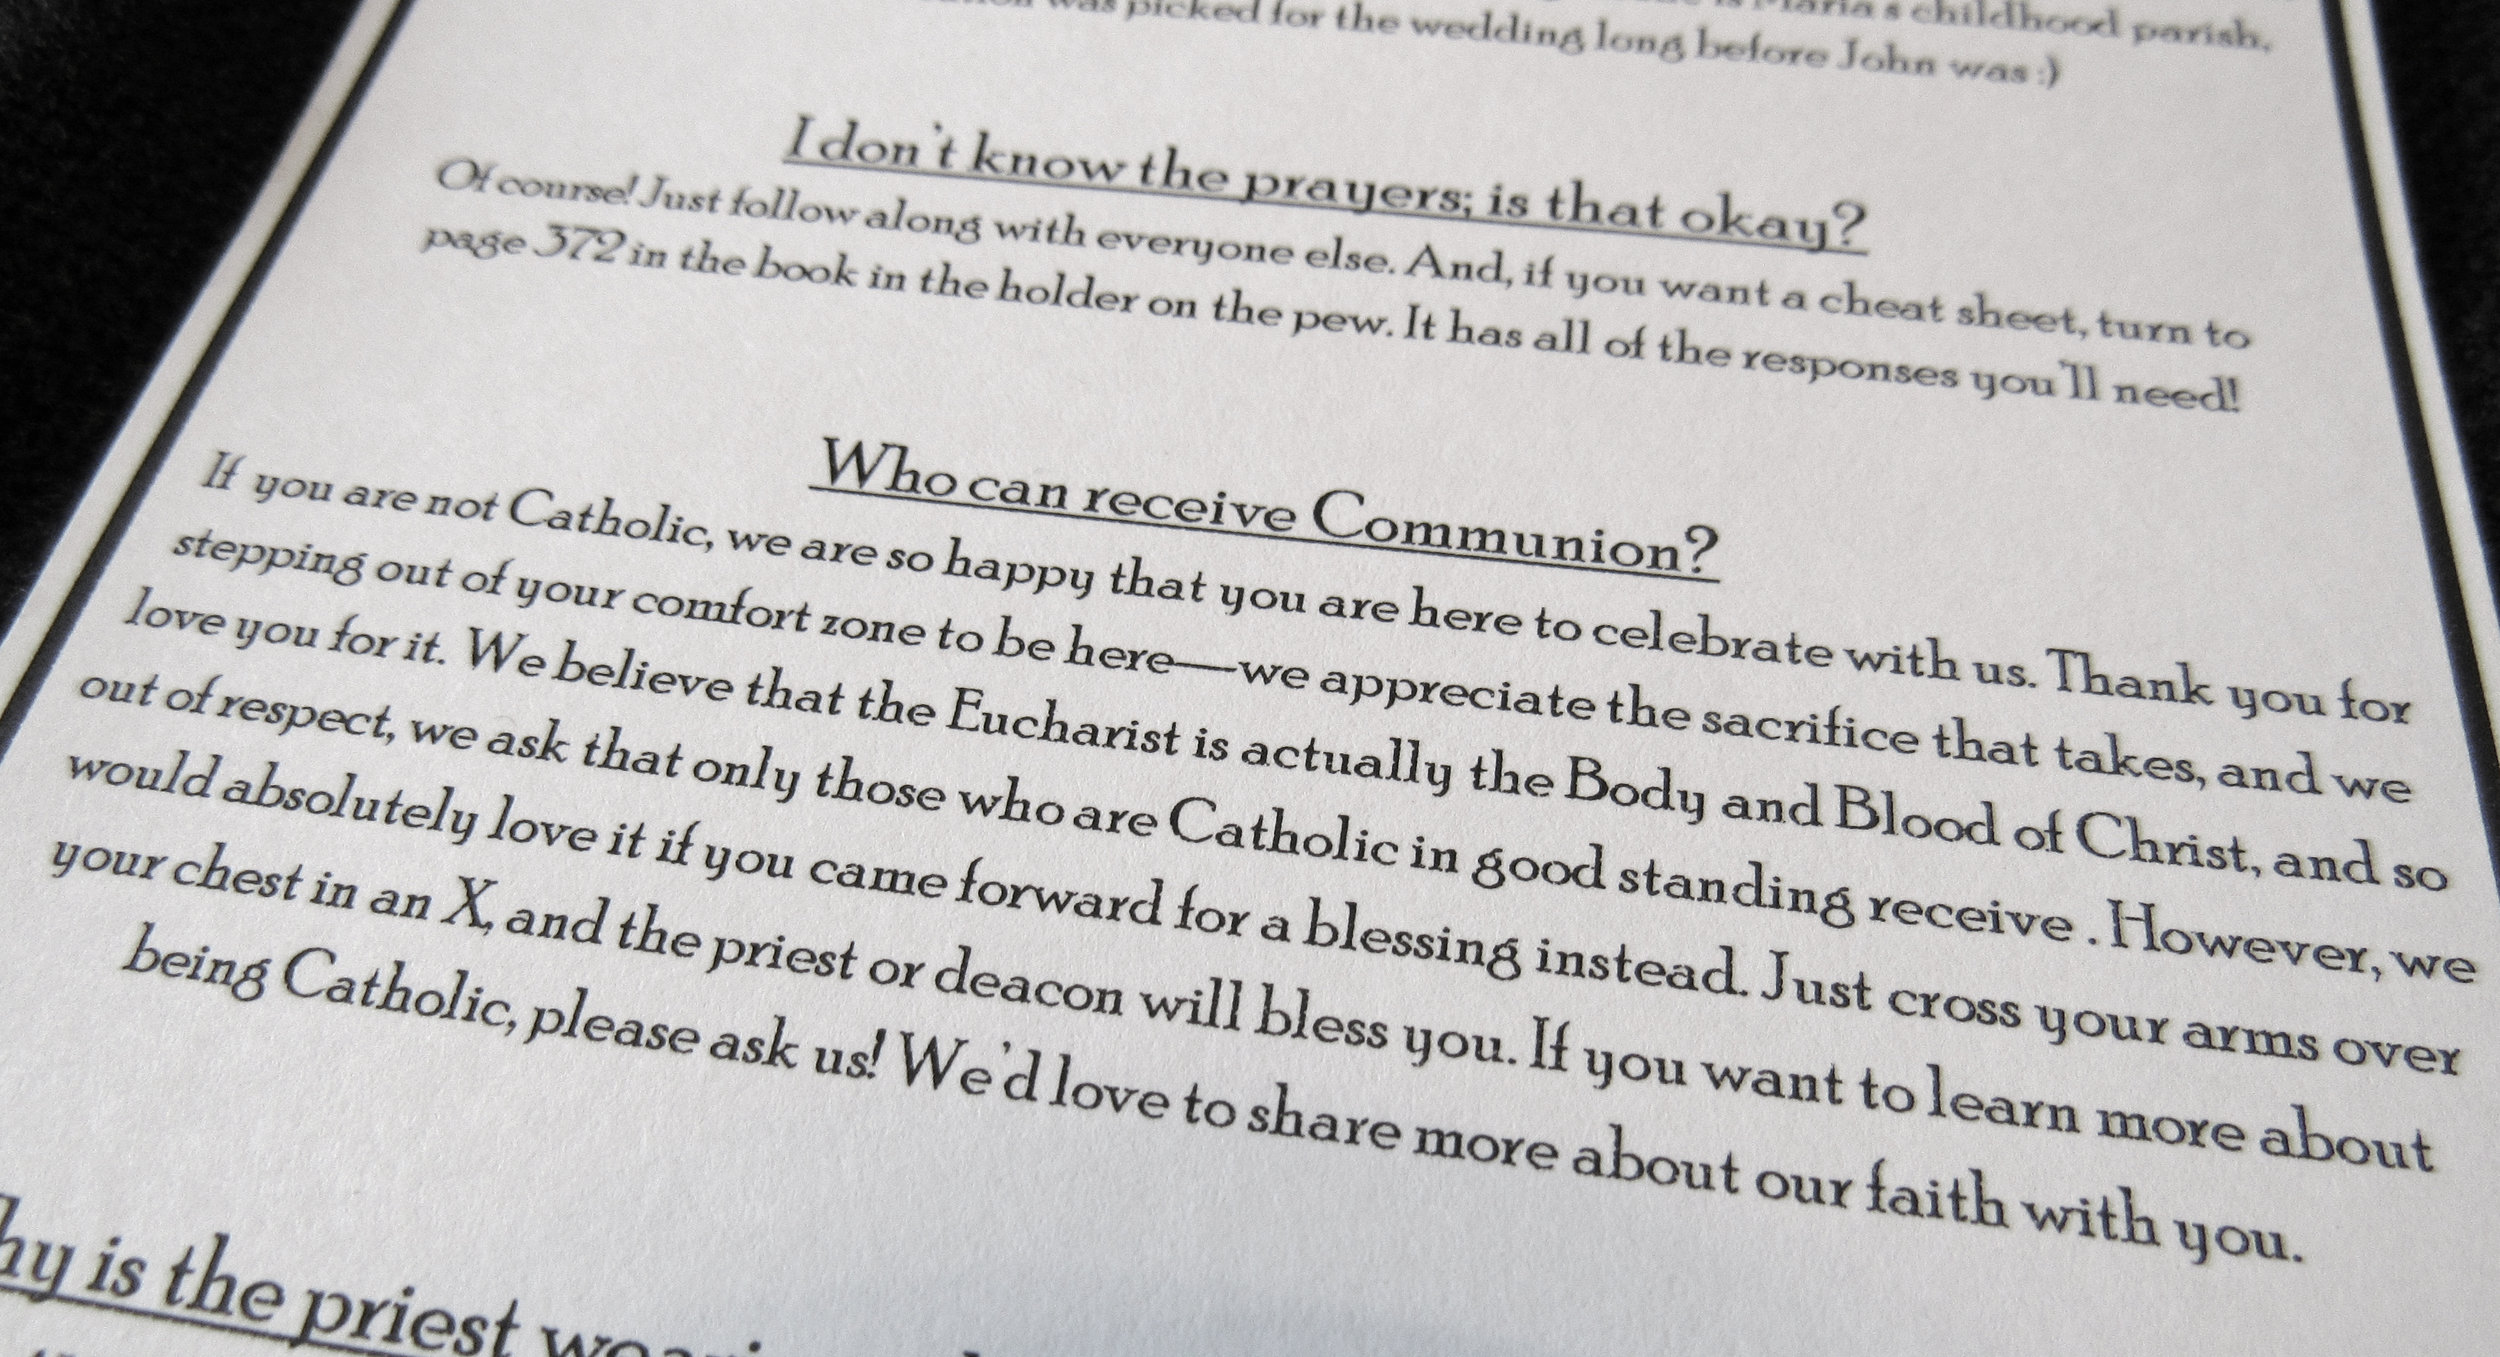 was picked for the wedding long before John was :)
Maria's childhood parish,
I don't know the prayers; is that okay?
Of course! Just follow along with everyone else. And, if you want a cheat sheet, turn to
page 372 in the book in the holder on the pew. It has all of the responses you'll need!
Who can receive Communion?
If you are not Catholic, we are so happy that you are here to celebrate with us. Thank you for
stepping out of your comfort zone to be here—we appreciate the sacrifice that takes, and we
love you for it. We believe that the Eucharist is actually the Body and Blood of Christ, and so
out of respect, we ask that only those who are Catholic in good standing receive . However, we
would absolutely love it if you came forward for a blessing instead. Just cross your arms over
your chest in an X, and the priest or deacon will bless you. If you want to learn more about
being Catholic, please ask us! We'd love to share more about our faith with you.
hy is the priest